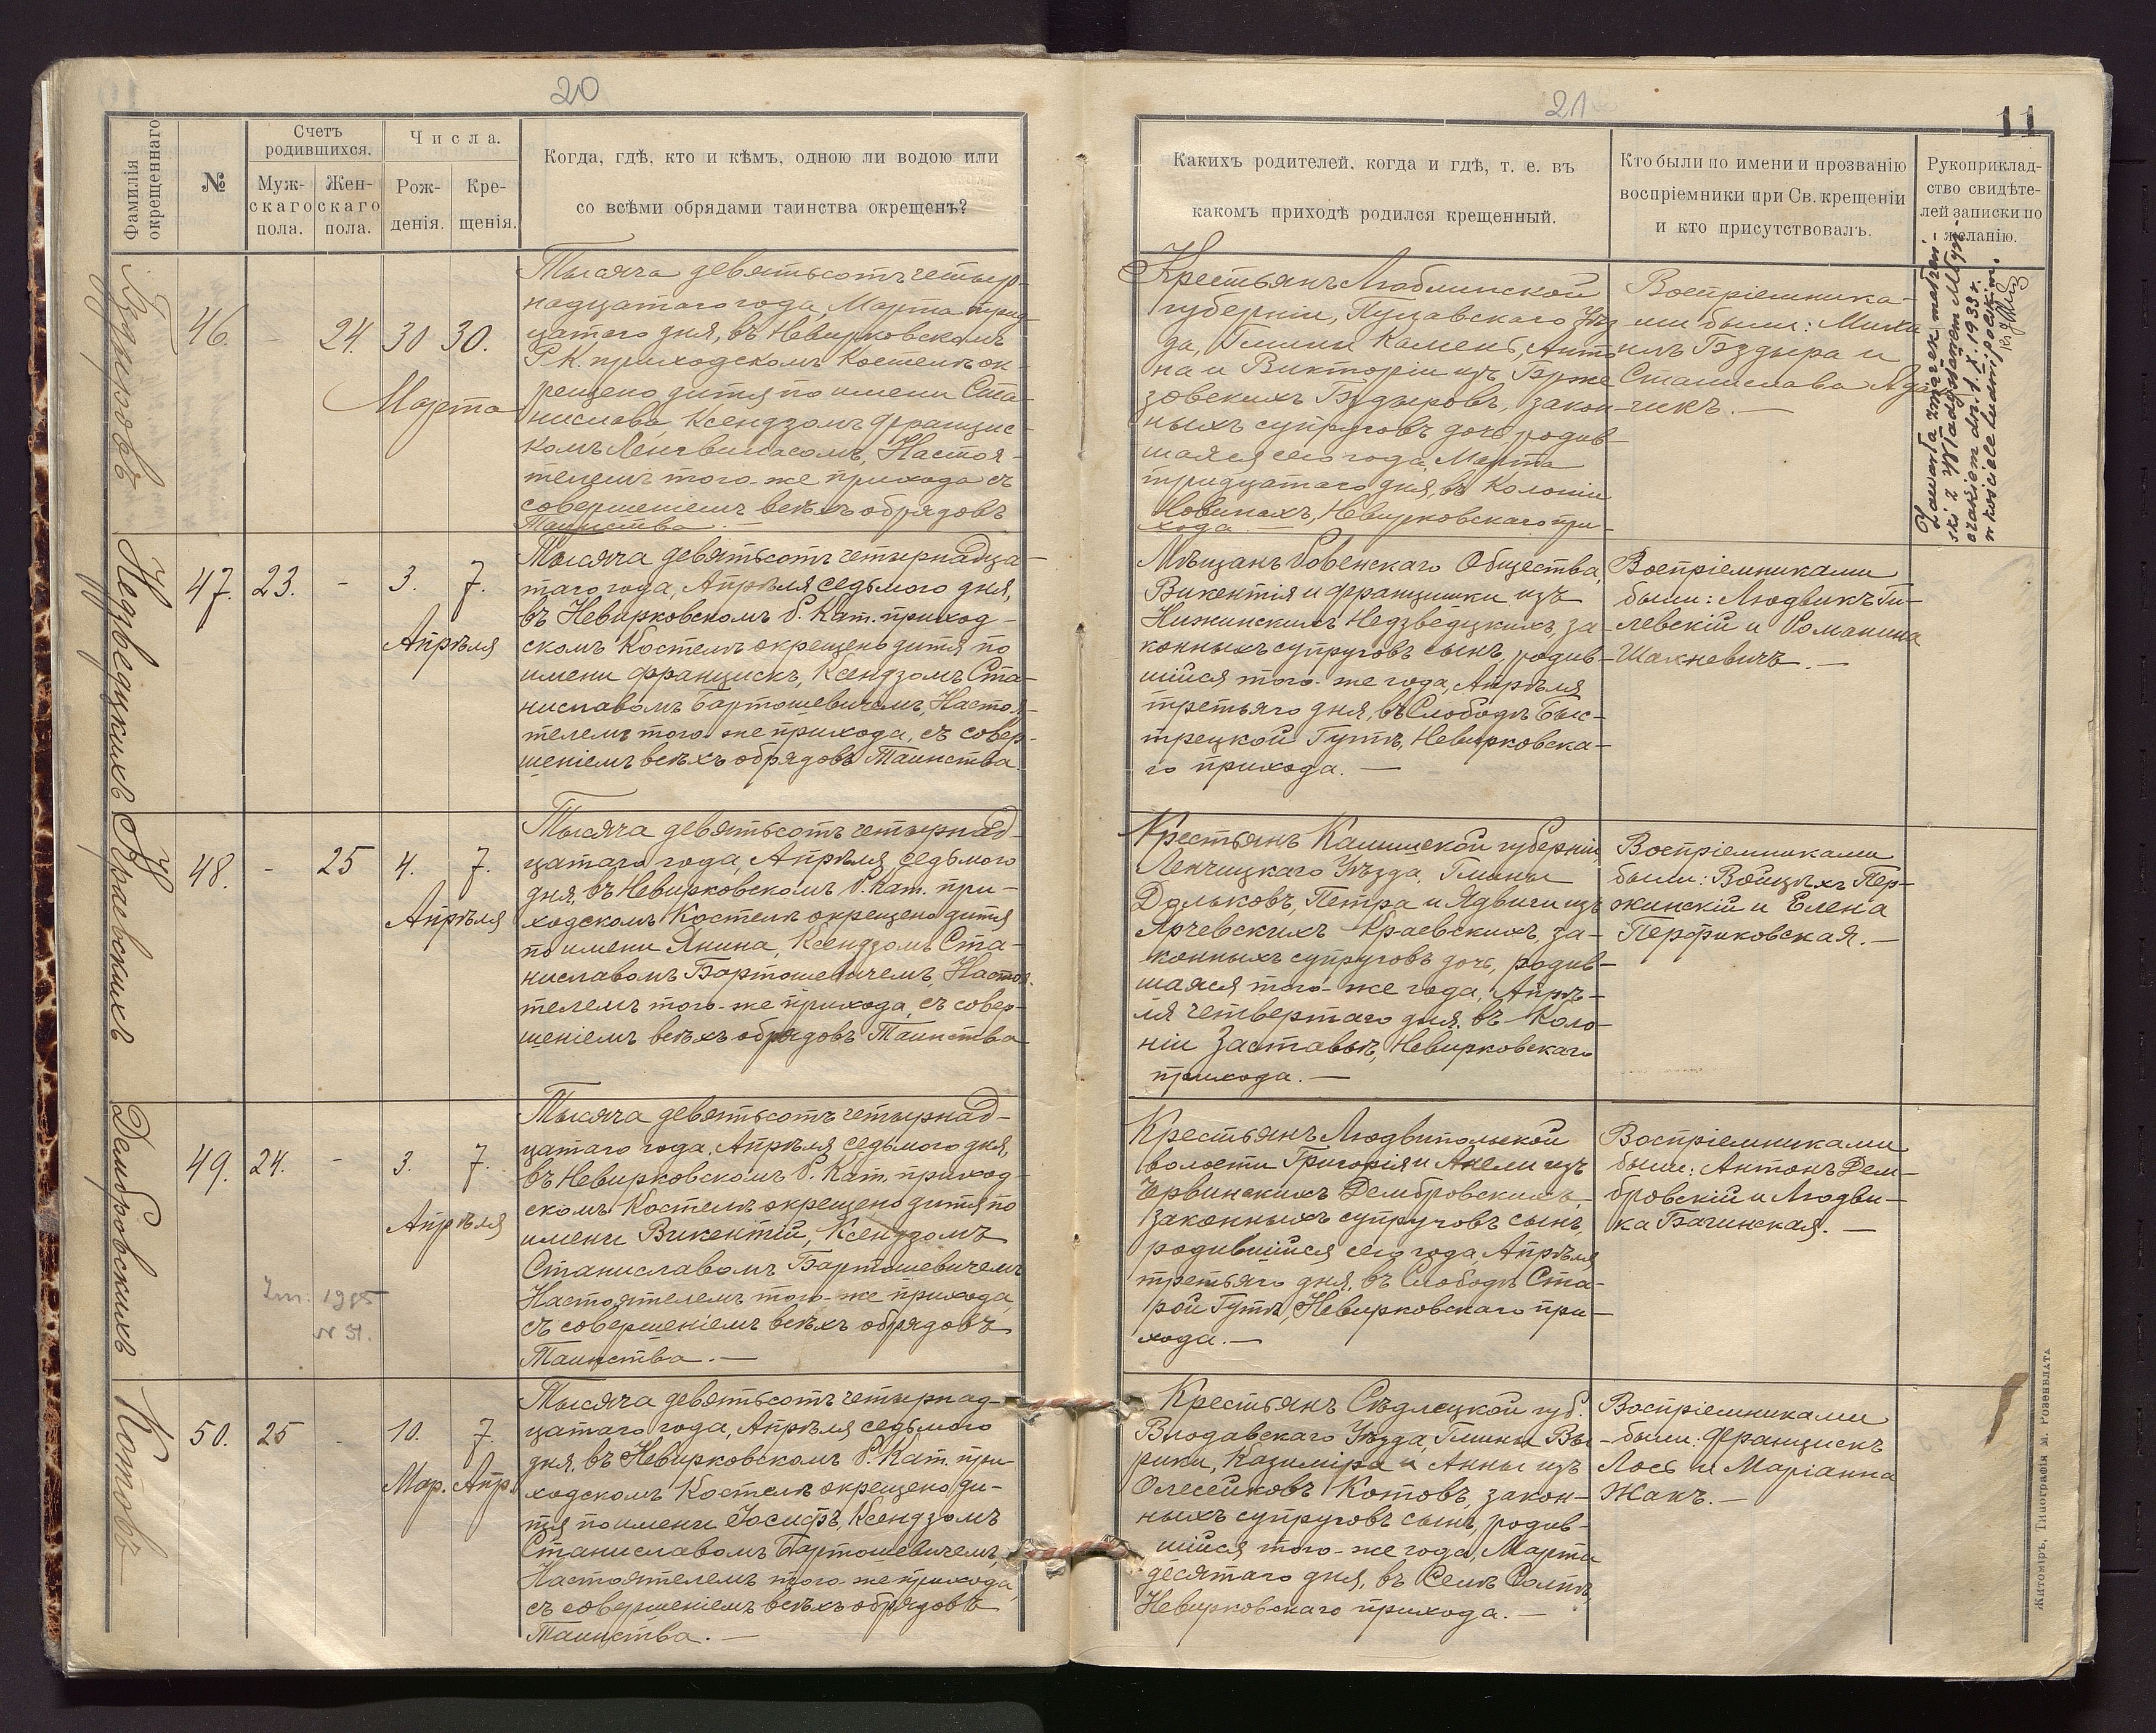 20
Фамилія окрещеннаго
№
Счетъ родившихся.
Муж-
скаго
пола.
Жен-
скаго
пола.
Числа.
Рож-
денія.
Кре-
щенія.
Когда, гдѣ, кто и кѣмъ, одною ли водою или
со всѣми обрядами таинства окрещенъ?
46. - 24. 30 30.
Марта
Тысяча девятьсотъ четыр-
надцатаго года, Марта трид-
цатаго дня, въ Невирковскомъ
Р. К. приходскомъ Костелѣ ок-
рещено дитя по имени Ста-
нислава, Ксендзомъ Францис-
комъ Ленгвинасомъ, Настоя-
телемъ того-же прихода съ
совершеніемъ всѣхъ обрядовъ
Таинства. —
Недзведцкихъ
47. 23. - 3. 7.
Апрѣля
Тысяча девятьсотъ четырнадца-
таго года, Апрѣля седьмого дня,
въ Невирковскомъ Р. Кат. приход-
скомъ Костелѣ окрещено дитя по
имени Францискъ, Ксендзомъ Ста-
ниславомъ Бартошевичемъ, Настоя-
телемъ того-же прихода, съ совер-
шеніемъ всѣхъ обрядовъ Таинства.
Краевскихъ
48. - 25 4. 7.
Апрѣля
Тысяча девятьсотъ четырнад-
цатаго года, Апрѣля седьмого
дня, въ Невирковскомъ Р. Кат. при-
ходскомъ Костелѣ окрещено дитя
по имени Янина, Ксендзомъ Ста-
ниславомъ Бартошевичемъ, Настоя-
телемъ того-же прихода, съ совер-
шеніемъ всѣхъ обрядовъ Таинства
Дембровскихъ
49. 24. - 3. 7.
Апрѣля
Zm. 1985
N 31.
Тысяча девятьсотъ четырнад-
цатаго года, Апрѣля седьмого дня,
въ Невирковскомъ Р. Кат. приход-
скомъ Костелѣ окрещено дитя по
имени Викентій, Ксендзомъ
Станиславомъ Бартошевичемъ
Настоятелемъ того-же прихода,
съ совершеніемъ всѣхъ обрядовъ
Таинства. —
Котовъ
50. 25 - 10. 7.
Мар. Апр.
Тысяча девятьсотъ четырнад-
цатаго года, Апрѣля седьмого
дня, въ Невирковскомъ Р. Кат. при-
ходскомъ Костелѣ окрещено ди-
тя по имени Іосифъ, Ксендзомъ
Станиславомъ Бартошевичемъ,
Настоятелемъ того-же прихода,
съ совершеніемъ всѣхъ обрядовъ
Таинства. —
21
11
Какихъ родителей, когда и гдѣ, т. е. въ
какомъ приходѣ родился крещенный.
Кто были по имени и прозванію
воспріемники при Св. крещеніи
и кто присутствовалъ.
Рукоприклад-
ство свидѣте-
лей записки по
желанію.
Крестьянъ Люблинской
губерніи, Пулавскаго Уѣз-
да, Гмины Камень, Анто-
на и Викторіи изъ Брже-
зовскихъ Бздыровъ, закон-
ныхъ супруговъ дочь, родив-
шаяся сего года, Марта
тридцатаго дня, въ Колоніи
Новинахъ, Невирковскаго при-
хода. —
Воспріемника-
ми были: Миха-
илъ Бздыра и
Станислава Адам-
чикъ. —
Zawarła związek małżeń-
ski z Władysławem
dn. 1. X. 1933 r.
w kościele ludwipolskim.
Мѣщанъ Ровенскаго Общества,
Викентія и Францишки изъ
Нижинскихъ Недзведцкихъ, за-
конныхъ супруговъ сынъ, родив-
шійся того-же года, Апрѣля
третьяго дня, въ Слободѣ Быс-
трецкой Гутѣ, Невирковска-
го прихода. —
Воспріемниками
были: Людвикъ Ги-
левскій и Романина
Шахневичъ. —
Крестьянъ Калишской губерніи
Ленчицкаго Уѣзда, Гмины
Дальковъ, Петра и Ядвиги изъ
Ярчевскихъ Краевскихъ, за-
конныхъ супруговъ дочь, родив-
шаяся того-же года, Апрѣ-
ля четвертаго дня, въ Коло-
ніи Заставьѣ, Невирковскаго
прихода. —
Воспріемниками
были: Войцѣхъ Пер-
жинскій и Елена
Перфиковская. —
Крестьянъ Людвипольской
волости Григорія и Анели изъ
Червинскихъ Демbровскихъ,
законныхъ супруговъ сынъ,
родившійся сего года, Апрѣля
третьяго дня, въ Слободѣ Ста-
рой Гутѣ, Невирковскаго при-
хода. —
Воспріемниками
были: Антонъ Дем-
бровскій и Людви-
ка Багинская. —
Крестьянъ Сѣдлецкой губ.
Влодавскаго Уѣзда, Гмины Вы-
рики, Казиміра и Анны изъ
Олесейковъ Котовъ, закон-
ныхъ супруговъ сынъ, родив-
шійся того-же года, Марта
десятаго дня, въ Селѣ Солпѣ,
Невирковскаго прихода. —
Воспріемниками
были: Францискъ
Лось и Маріанна
Жакъ. —
Житоміръ, Типографія М. Розенблата